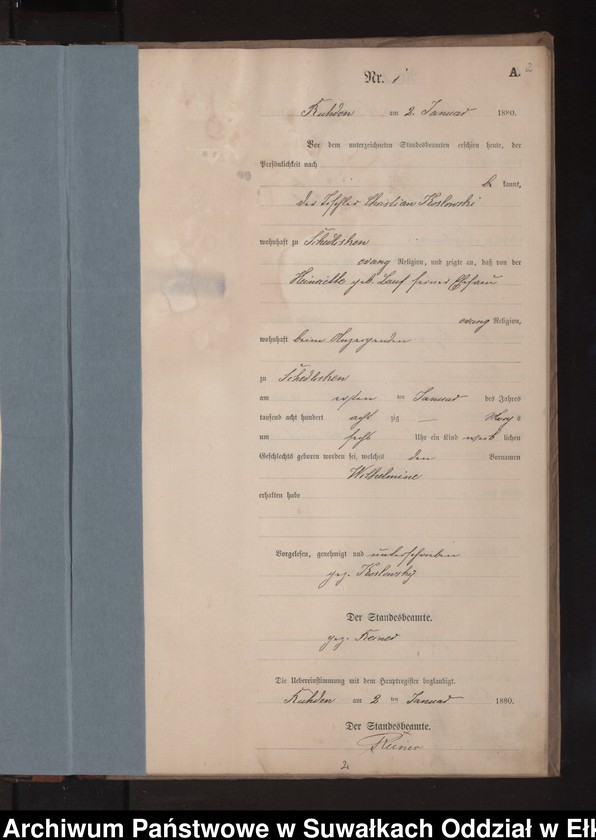 Nr. 1
A. 2
am 2. Januar 1880.
Vor dem unterzeichneten Standesbeamten erschien heute, der
Persönlichkeit nach
be kannt,
der Christian Koslowski
wohnhaft zu
evang Religion, und zeigte an, daß von der
Heinriette geb. Lauf seiner Ehefrau
evang Religion,
wohnhaft beim Anzeigenden
zu
am ersten ten Januar des Jahres
tausend acht hundert acht zig — Morgens
um sechs Uhr ein Kind weib lichen
Geschlechts geboren worden sei, welches den Vornamen
Wilhelmine
erhalten habe
Vorgelesen, genehmigt und unterschrieben
gez. Koslowsky
Der Standesbeamte.
gez. Reiner
Die Uebereinstimmung mit dem Hauptregister beglaubigt.
am 2 ten Januar 1880.
Der Standesbeamte.
Reiner
Archiwum Państwowe w Suwałkach Oddział w Ełk